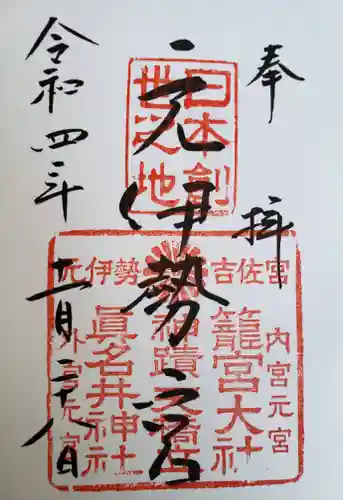 奉拝
日本創
世之地
元伊勢宮
吉佐宮
元伊勢
内宮元宮
籠宮大社
神蹟
眞名井神社
外宮元宮
令和四年
十二月二十八日